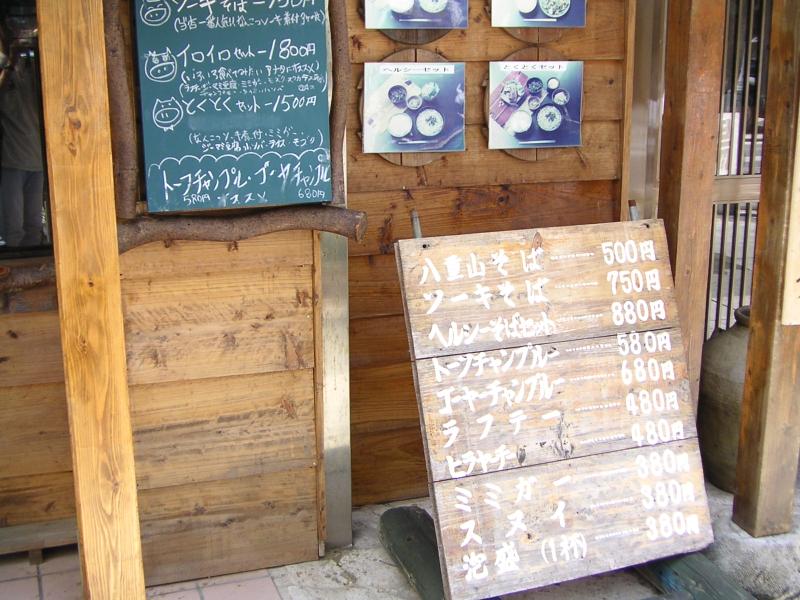 イロイロセット－1800円
とくとくセット－1500円
トーフチャンプル・ゴーヤチャンプル
580円 680円
ヘルシーセット
とくとくセット
八重山そば 500円
ソーキそば 750円
ヘルシーそばセット 880円
トーフチャンプルー 580円
ゴーヤーチャンプルー 680円
ラフテー 480円
ヒラヤチー 480円
ミミガー 380円
スヌイ 380円
泡盛（1杯） 380円